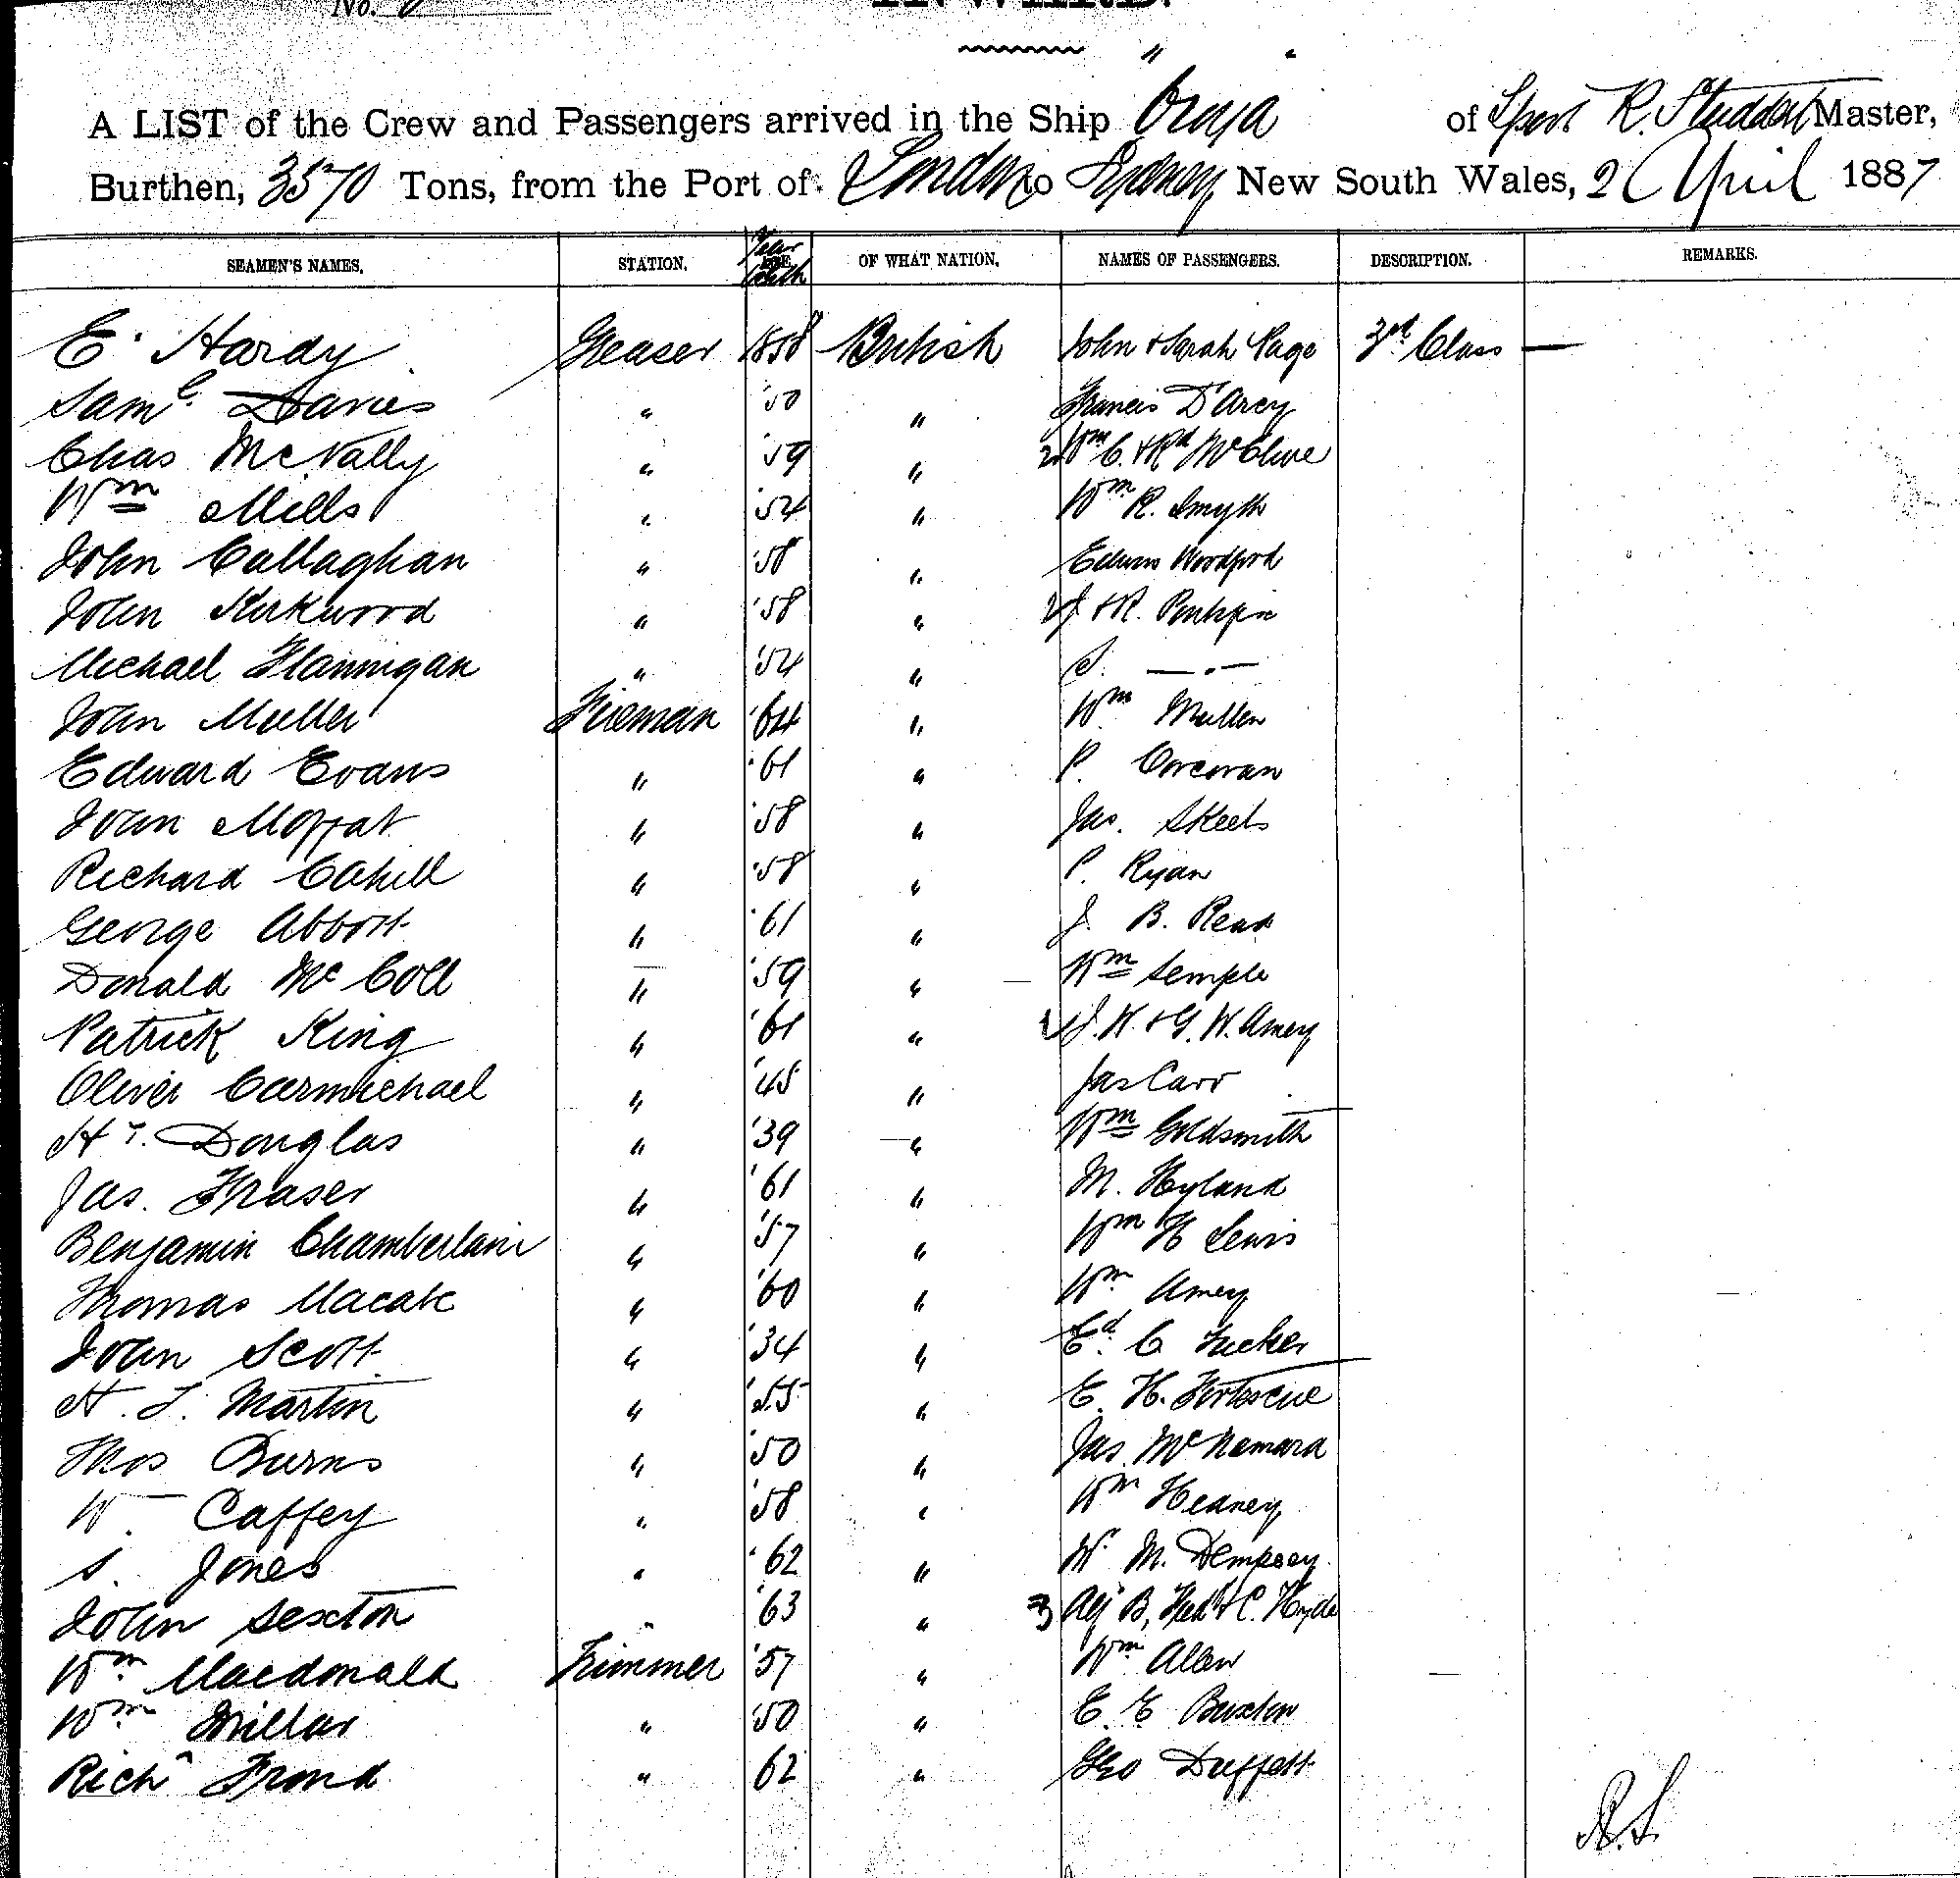 No.
INWARD.
A LIST of the Crew and Passengers arrived in the Ship "Oroya" of Lpool R. Studdert Master,
Burthen, 3570 Tons, from the Port of London to Sydney New South Wales, 2 April 1887
SEAMEN'S NAMES. STATION. Year Birth OF WHAT NATION. NAMES OF PASSENGERS. DESCRIPTION. REMARKS.
E. Hardy Greaser 1858 British John & Sarah Page 3rd Class —
Saml. Davies " '50 " Francis D'Arcy
Chas McNally " '59 " 2 Wm C. & Rd McClure
Wm Mills " '54 " Wm R. Smyth
John Callaghan " '58 " Edwin Woodford
John Kirkwood " '58 " 2 J & R.
Michael Flannigan " '54 " S. —.—
John Muller Fireman '64 " Wm Mullen
Edward Evans " '61 " P. Corcoran
John Moffat " '58 " Jas. Skeels
Richard Cahill " '58 " P. Ryan
George Abbott " '61 " J. B. Read
Donald McColl " '59 " Wm Semple
Patrick King " '61 " 2 J. H. & G. W. Amey
Oliver Carmichael " '45 " Jas Carr
Hy. Douglas " '39 " Wm Goldsmith
Jas. Fraser " '61 " M. Hyland
Benjamin Chamberlain " '57 " Wm H Lewis
Thomas Macabe " '60 " Wm Amey
John Scott " '34 " Ed. C Tucker
H. J. Martin " '55 " E. H. Fortescue
Thos Burns " '50 " Jas. McNamara
W Caffey " '58 " Wm Heaney
S. Jones " '62 " W. M. Dempsey
John Sexton " '63 " 3 Alf B, Fredk & C. Hyde
Wm Macdonald Trimmer '57 " Wm Allen
Wm Millar " '50 " E. E Buxton
Richd Frond " 62 " Geo Duffett
R.S.